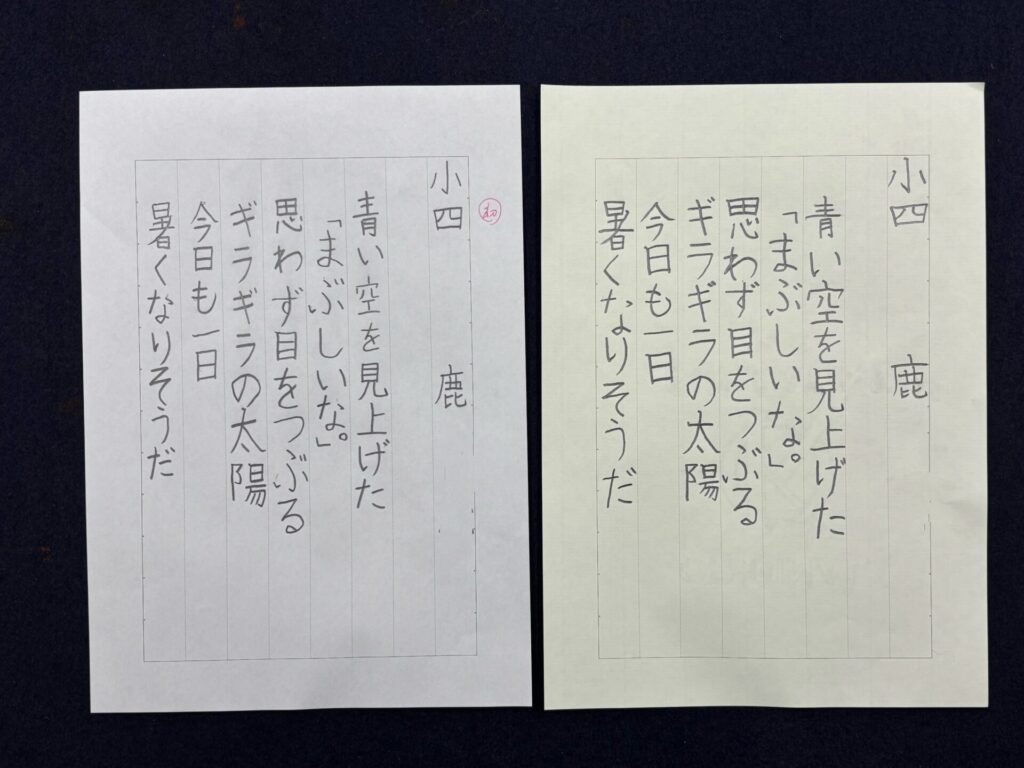 小四 鹿
青い空を見上げた
「まぶしいな。」
思わず目をつぶる
ギラギラの太陽
今日も一日
暑くなりそうだ
初
小四 鹿
青い空を見上げた
「まぶしいな。」
思わず目をつぶる
ギラギラの太陽
今日も一日
暑くなりそうだ